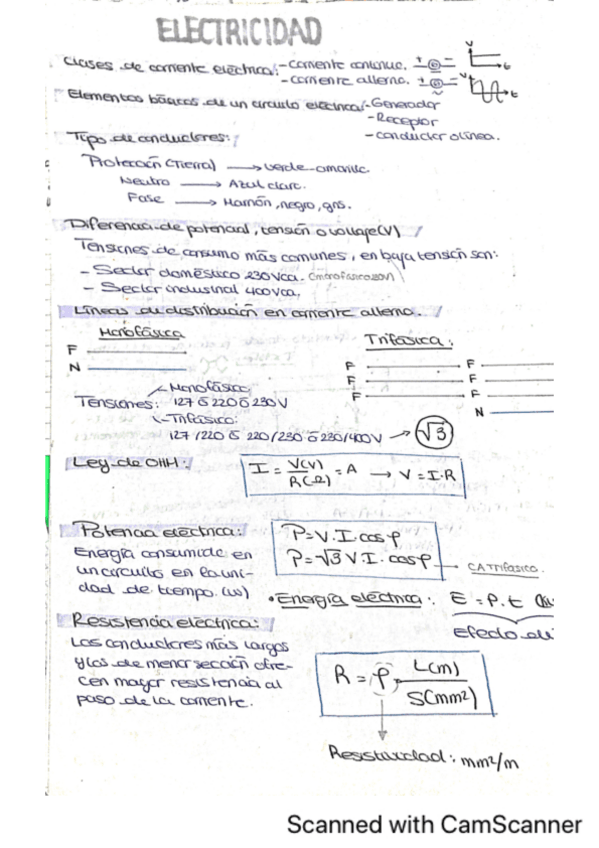 ELECTRICIDAD
Clases de corriente eléctrica: - Corriente continua.
- Corriente alterna.
Elementos básicos de un circuito eléctrico: - Generador
- Receptor
- Conductor o línea.
Tipo de conductores:
Protección (Tierra) → Verde-amarillo
Neutro → Azul claro.
Fase → Marrón, negro, gris.
Diferencia de potencial, tensión o voltaje (V)
Tensiones de consumo más comunes, en baja tensión son:
- Sector doméstico 230Vca.
- Sector industrial 400Vca.
Líneas de distribución en corriente alterna.
Monofásica
Trifásica:
F
N
F F
F F
F F
N
Monofásica
Tensiones: 127 ó 220 ó 230V
Trifásica:
127/220 ó 220/230 ó 230/400V → √3
Ley de OHM: I = V(V)/R(Ω) = A → V = I·R
Potencia eléctrica:
Energía consumida en
un circuito en la uni-
dad de tiempo. (W)
P=V.I.cosφ
P=√3 V.I.cosφ
CA Trifásica.
• Energía eléctrica: E = P.t
efecto
Resistencia eléctrica:
Los conductores más largos
y los de menor sección ofre-
cen mayor resistencia al
paso de la corriente.
R = ρ · L(m)/S(mm²)
Resistividad: mm²/m
Scanned with CamScanner